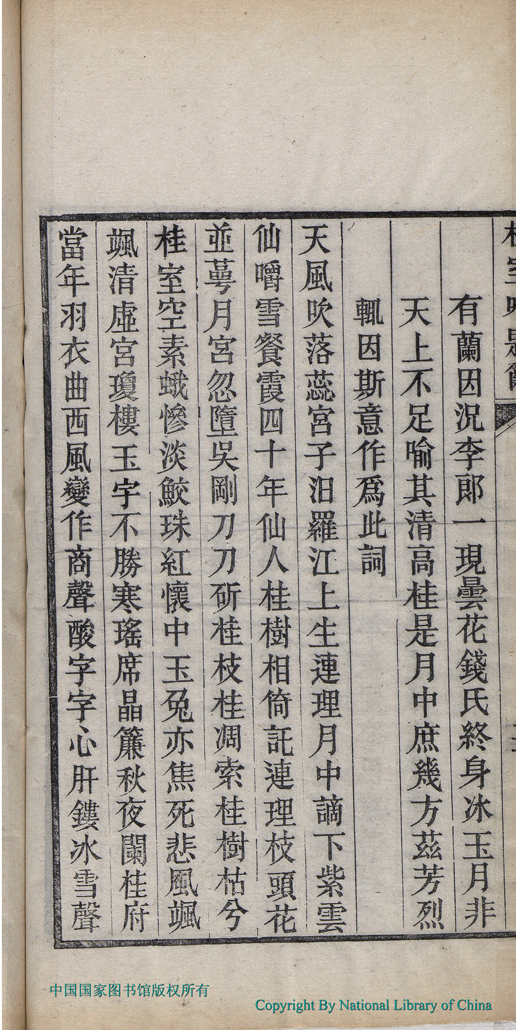 桂室吟
有蘭因況李郎一現曇花錢氏終身冰玉月非
天上不足喻其清高桂是月中庶幾方茲芳烈
輒因斯意作爲此詞
天風吹落蕊宮子汨羅江上生連理月中謫下紫雲
仙嚼雪餐霞四十年仙人桂樹相倚託連理枝頭花
並萼月宮忽墮吳剛刀刀斫桂枝桂凋索桂樹枯兮
桂室空素蛾慘淡鮫珠紅懷中玉兔亦焦死悲風颯
颯清虛宮瓊樓玉字不勝寒瑤席晶簾秋夜闌桂府
當年羽衣曲西風變作商聲酸字字心肝鏤冰雪聲
中国国家图书馆版权所有
Copyright By National Library of China